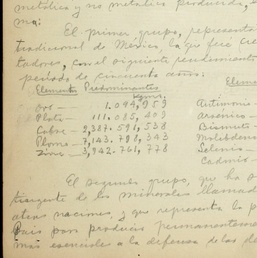 metálico y no metálico producida, e
ma:
El primer grupo, representa
tradicional de México, la que fera cre
tadores, con el siguiente rendimiento
período de cincuenta años:
Elementos Predominantes Elemen
Oro - 1.094,959 Antimonio
Plata - 111.085,409 arsenico
Cobre - 2,387.591,538 Bismuto
Plomo - 7,143.798,343 Molibdeno
Zinc - 3,942.761,778 Selenio
Cadmio
El segundo grupo, que ha
de los minerales llamad
naciones, y que representa la p
País para producir permanenteme
más esenciales a la defensa de las de